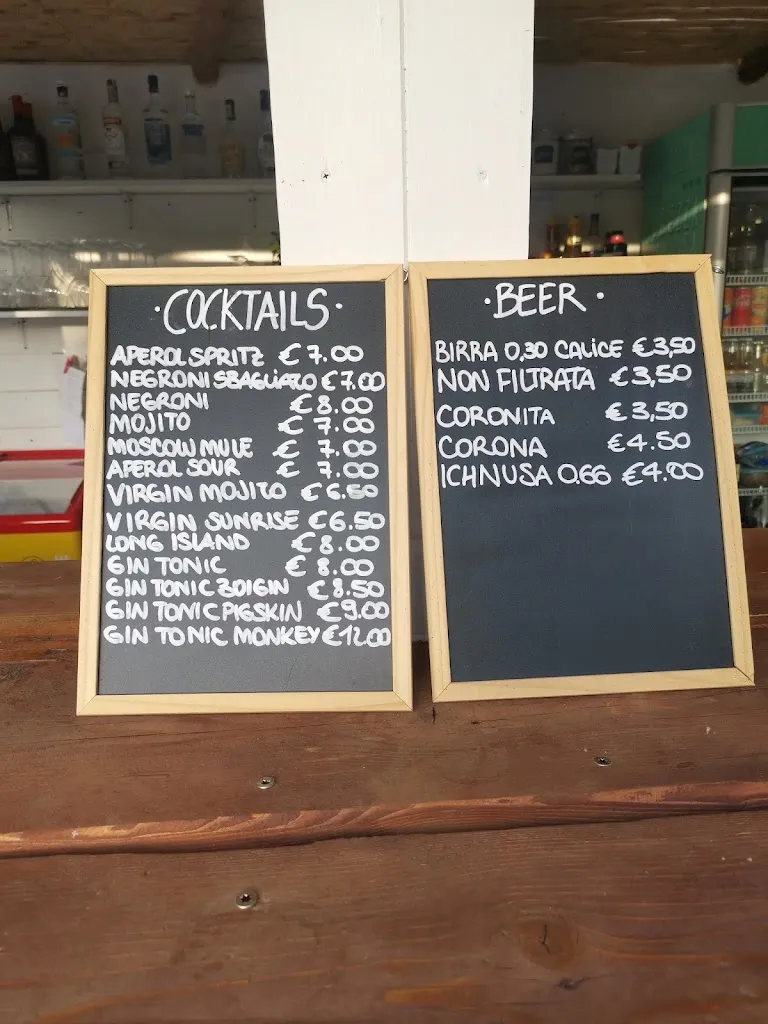 ·COCKTAILS·
APEROL SPRITZ €7.00
NEGRONI SBAGLIATO €7.00
NEGRONI €8.00
MOJITO € 7.00
MOSCOW MULE € 7.00
APEROL SOUR € 7.00
VIRGIN MOJITO €6.50
VIRGIN SUNRISE €6.50
LONG ISLAND €8.00
GIN TONIC € 8.00
GIN TONIC 3DIGIN €8.50
GIN TONIC PIGSKIN €9.00
GIN TONIC MONKEY €12.00
·BEER·
BIRRA 0,30 CALICE €3,50
NON FILTRATA €3,50
CORONITA €3,50
CORONA €4.50
ICHNUSA 0.66 €4.00